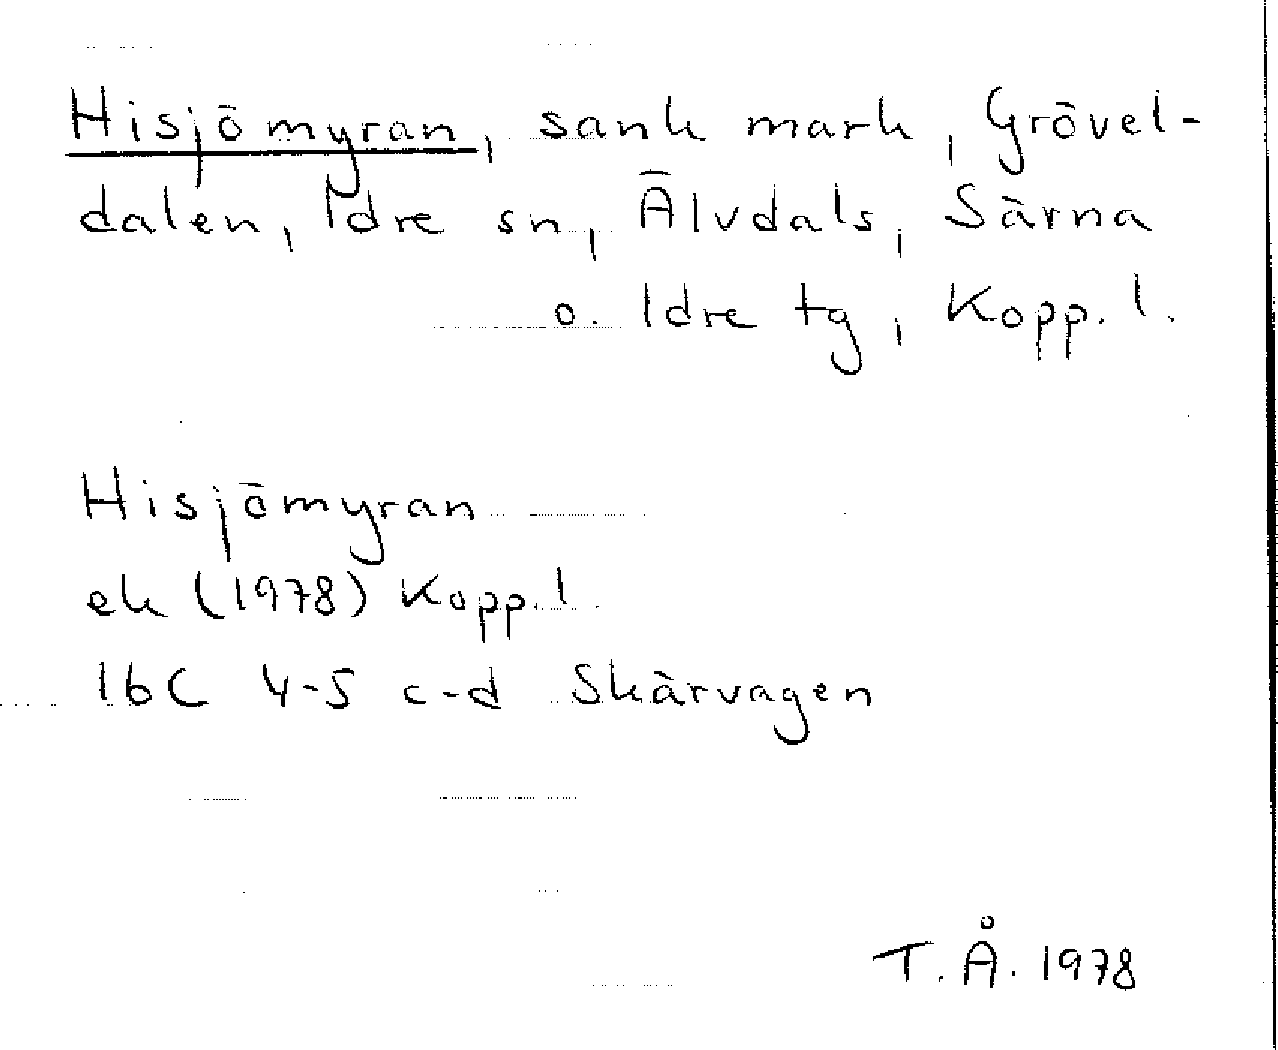 Hisjömyran, sank mark, Grövel-
dalen, Idre sn, Älvdals, Särna
o. Idre tg, Kopp. l.
Hisjömyran
ek (1978) Kopp. l.
16C 4-5 c-d Skärvagen
T. Å. 1978